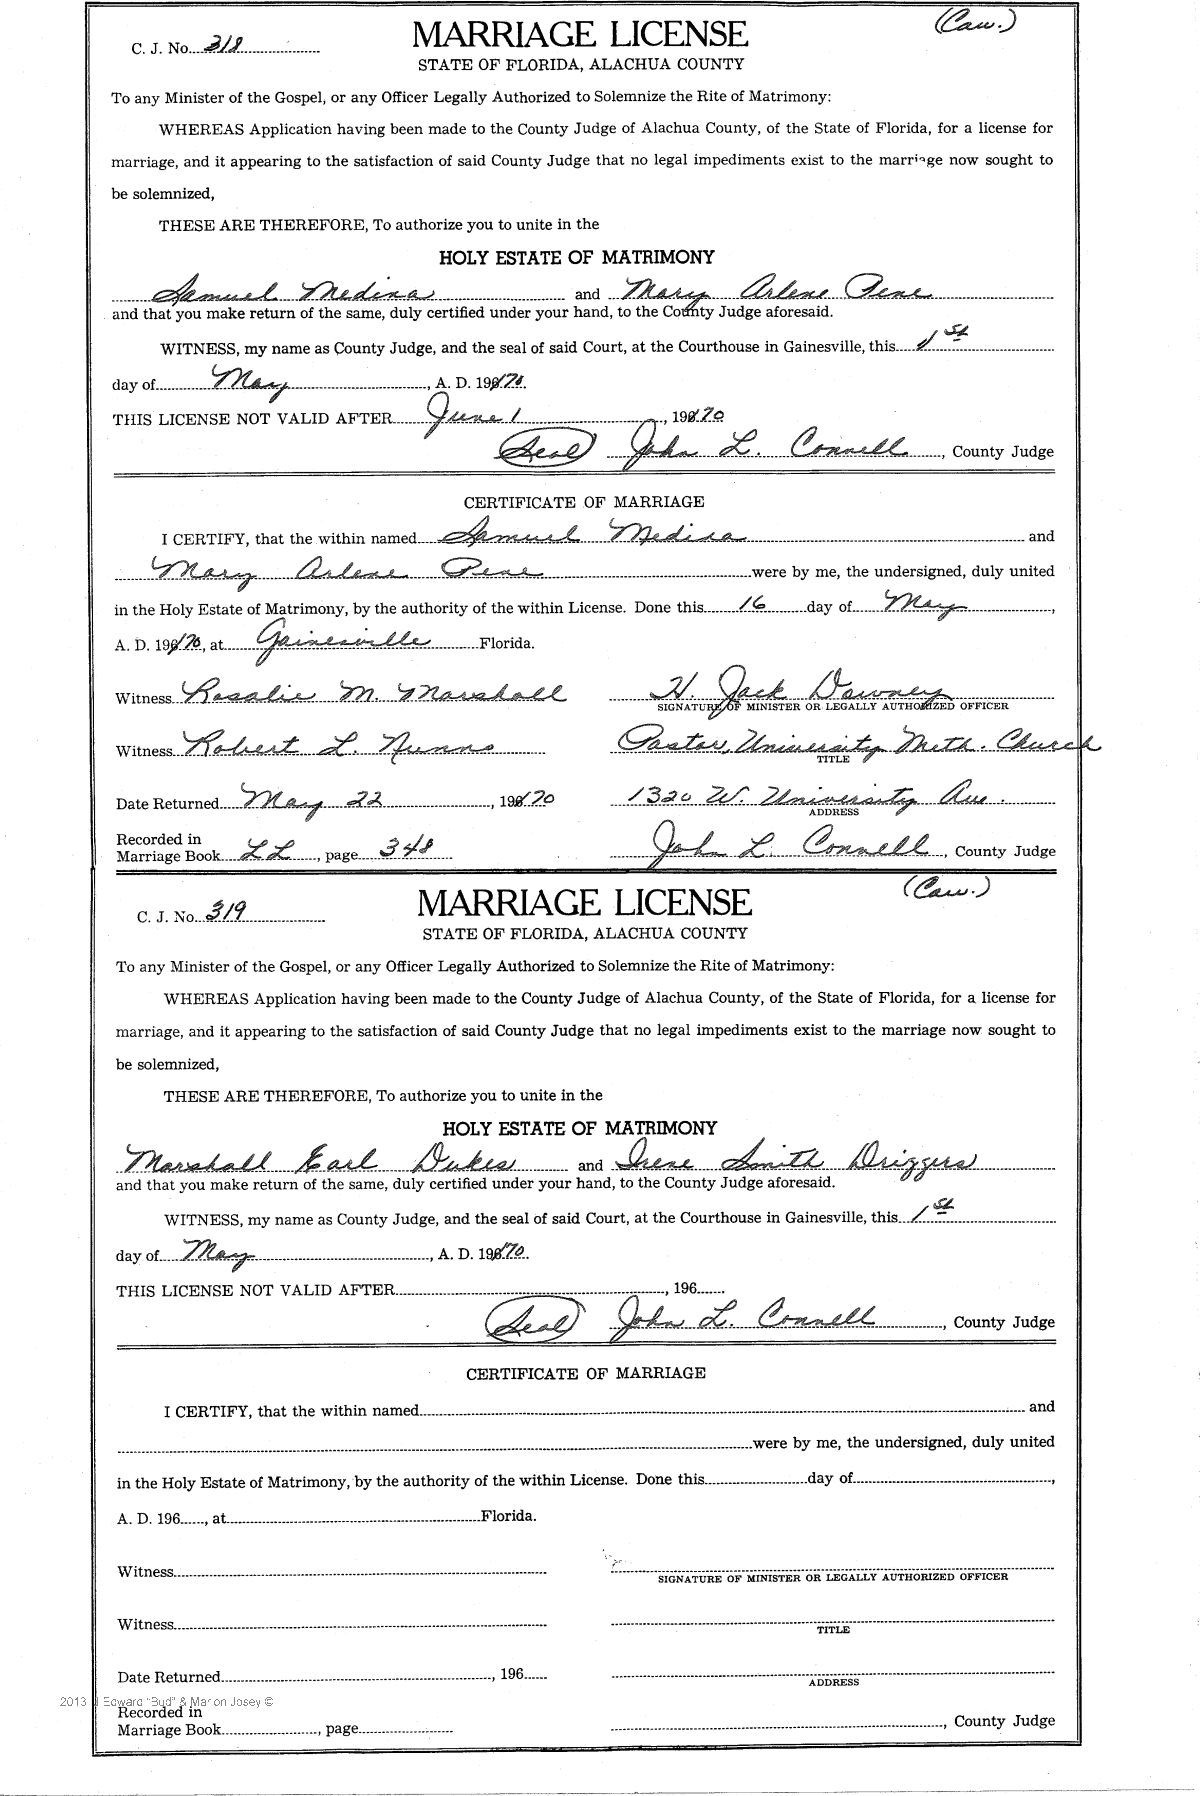 (Cau.)
C. J. No. 318
MARRIAGE LICENSE
STATE OF FLORIDA, ALACHUA COUNTY
To any Minister of the Gospel, or any Officer Legally Authorized to Solemnize the Rite of Matrimony:
WHEREAS Application having been made to the County Judge of Alachua County, of the State of Florida, for a license for
marriage, and it appearing to the satisfaction of said County Judge that no legal impediments exist to the marriage now sought to
be solemnized,
THESE ARE THEREFORE, To authorize you to unite in the
HOLY ESTATE OF MATRIMONY
Samuel Medina and Mary Arlene Pene
and that you make return of the same, duly certified under your hand, to the County Judge aforesaid.
WITNESS, my name as County Judge, and the seal of said Court, at the Courthouse in Gainesville, this 1st
day of May, A. D. 1970.
THIS LICENSE NOT VALID AFTER June 1, 1970
(Seal) John L. Connell, County Judge
CERTIFICATE OF MARRIAGE
I CERTIFY, that the within named Samuel Medina and
Mary Arlene Pene were by me, the undersigned, duly united
in the Holy Estate of Matrimony, by the authority of the within License. Done this 16 day of May,
A. D. 1970, at Gainesville Florida.
Witness Rosalie M. Marshall H. Jack Downey
SIGNATURE OF MINISTER OR LEGALLY AUTHORIZED OFFICER
Witness Robert L. Nunns Pastor, University Meth. Church
TITLE
Date Returned May 22, 1970 1320 W. University Ave.
ADDRESS
Recorded in
Marriage Book LL, page 348 John L. Connell, County Judge
(Cau.)
C. J. No. 319
MARRIAGE LICENSE
STATE OF FLORIDA, ALACHUA COUNTY
To any Minister of the Gospel, or any Officer Legally Authorized to Solemnize the Rite of Matrimony:
WHEREAS Application having been made to the County Judge of Alachua County, of the State of Florida, for a license for
marriage, and it appearing to the satisfaction of said County Judge that no legal impediments exist to the marriage now sought to
be solemnized,
THESE ARE THEREFORE, To authorize you to unite in the
HOLY ESTATE OF MATRIMONY
Marshall Earl Dukes and Irene Smith Driggers
and that you make return of the same, duly certified under your hand, to the County Judge aforesaid.
WITNESS, my name as County Judge, and the seal of said Court, at the Courthouse in Gainesville, this 1st
day of May, A. D. 1970.
THIS LICENSE NOT VALID AFTER, 196
(Seal) John L. Connell, County Judge
CERTIFICATE OF MARRIAGE
I CERTIFY, that the within named and
were by me, the undersigned, duly united
in the Holy Estate of Matrimony, by the authority of the within License. Done this day of,
A. D. 196, at Florida.
Witness
SIGNATURE OF MINISTER OR LEGALLY AUTHORIZED OFFICER
Witness
TITLE
Date Returned, 196
ADDRESS
2013 J Edward "Bud" & Marion Josey ©
Recorded in
Marriage Book, page , County Judge